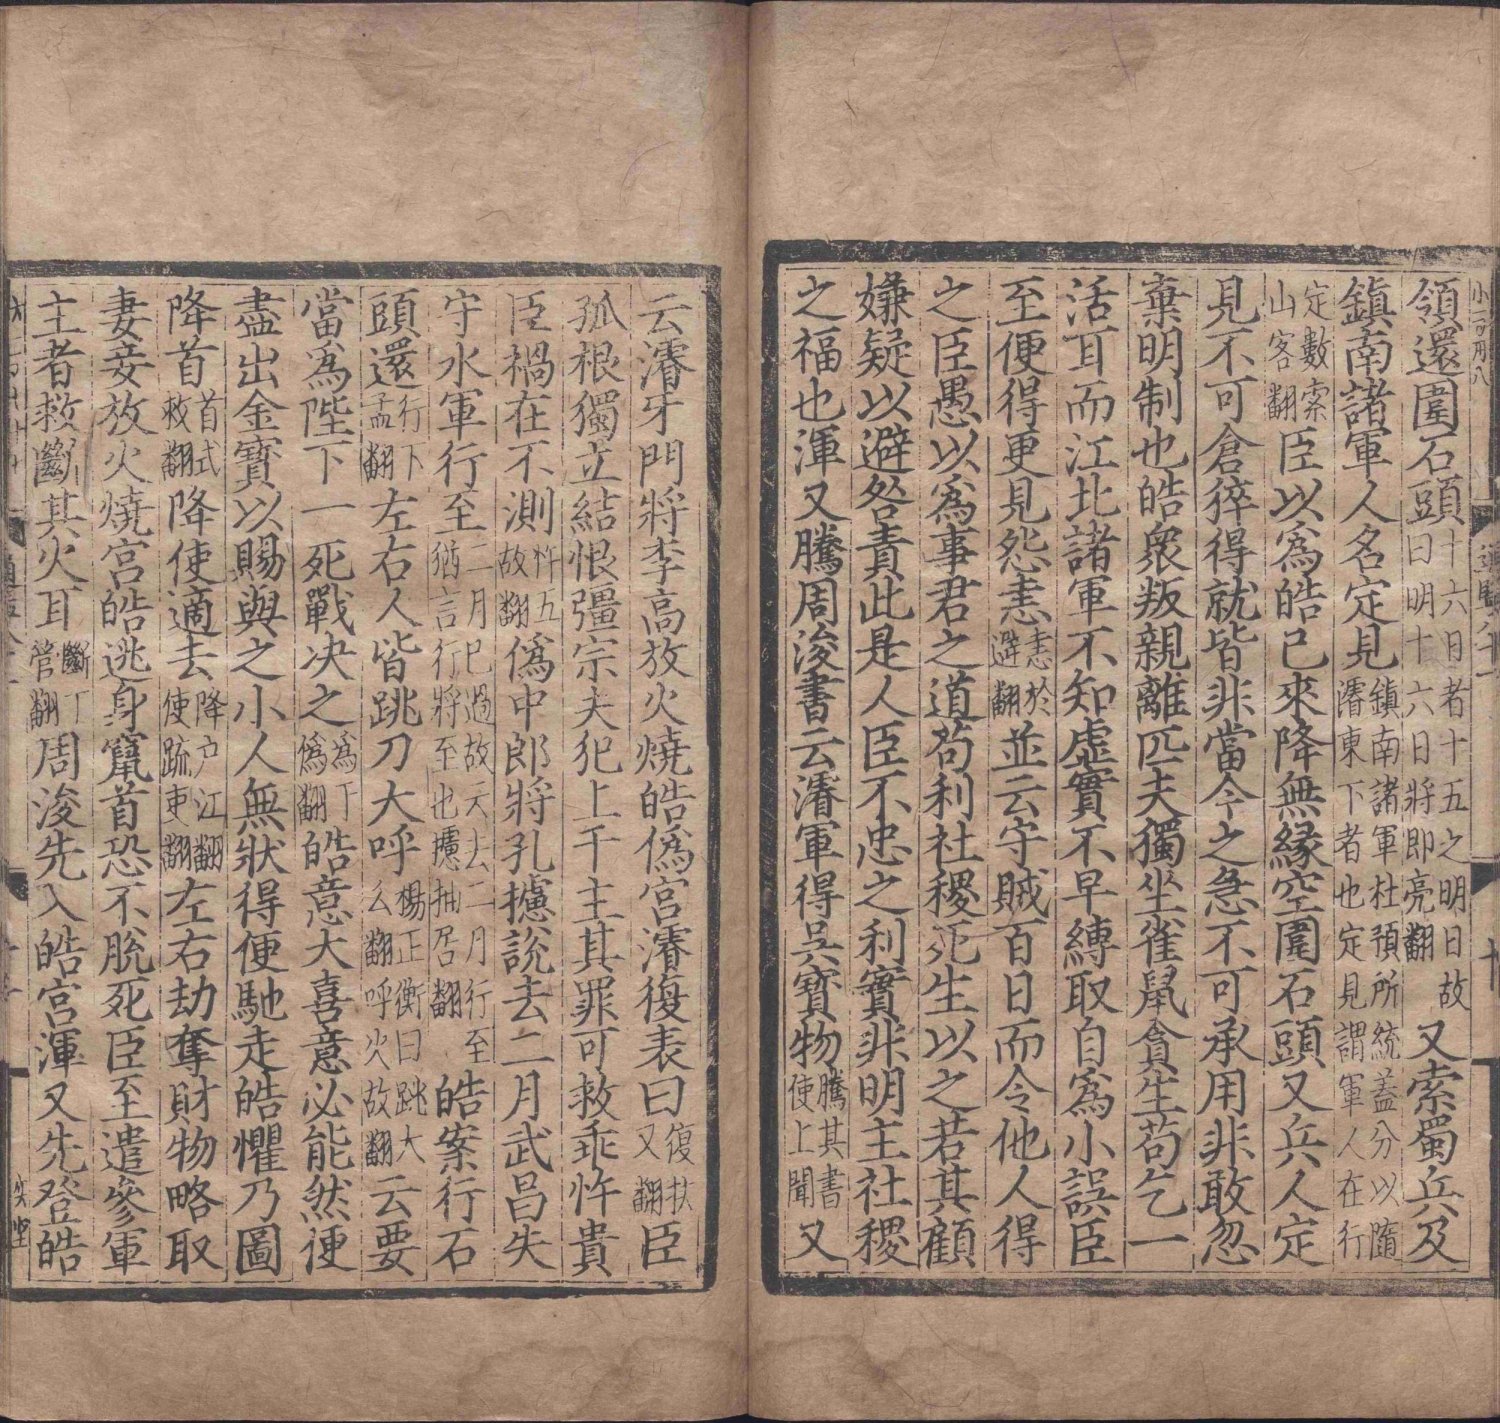 領還圍石頭十六日者十五之明日故曰明十六日將即亮翻又索蜀兵及
鎮南諸軍人名定見鎮南諸軍杜預所統蓋分以隨濬東下者也定見謂軍人在行
定數索山客翻臣以爲皓已來降無緣空圍石頭又兵人定
見不可倉猝得就皆非當今之急不可承用非敢忽
棄明制也皓衆叛親離匹夫獨坐雀鼠貪生苟乞一
活耳而江北諸軍不知虛實不早縛取自爲小誤臣
至便得更見怨恚恚於避翻並云守賊百日而令他人得
之臣愚以爲事君之道苟利社稷死生以之若其顧
嫌疑以避咎責此是人臣不忠之利實非明主社稷
之福也渾又騰周浚書云濬軍得吳寶物騰其書使上聞又
云濬牙門將李高放火燒皓僞宮濬復表曰復扶又翻臣
孤根獨立結恨彊宗夫犯上干主其罪可救乖忤貴
臣禍在不測忤五故翻僞中郎將孔攄說去二月武昌失
守水軍行至二月已過故云去二月行至猶言行將至也攄抽居翻皓案行石
頭還行下孟翻左右人皆跳刀大呼楊正衡曰跳大么翻呼火故翻云要
當爲陛下一死戰決之爲于僞翻皓意大喜意必能然便
盡出金寶以賜與之小人無狀得便馳走皓懼乃圖
降首首式救翻降使適去降戶江翻使疏吏翻左右劫奪財物略取
妻妾放火燒宮皓逃身竄首恐不脫死臣至遣參軍
主者救斷其火耳斷丁管翻周浚先入皓宮渾又先登皓